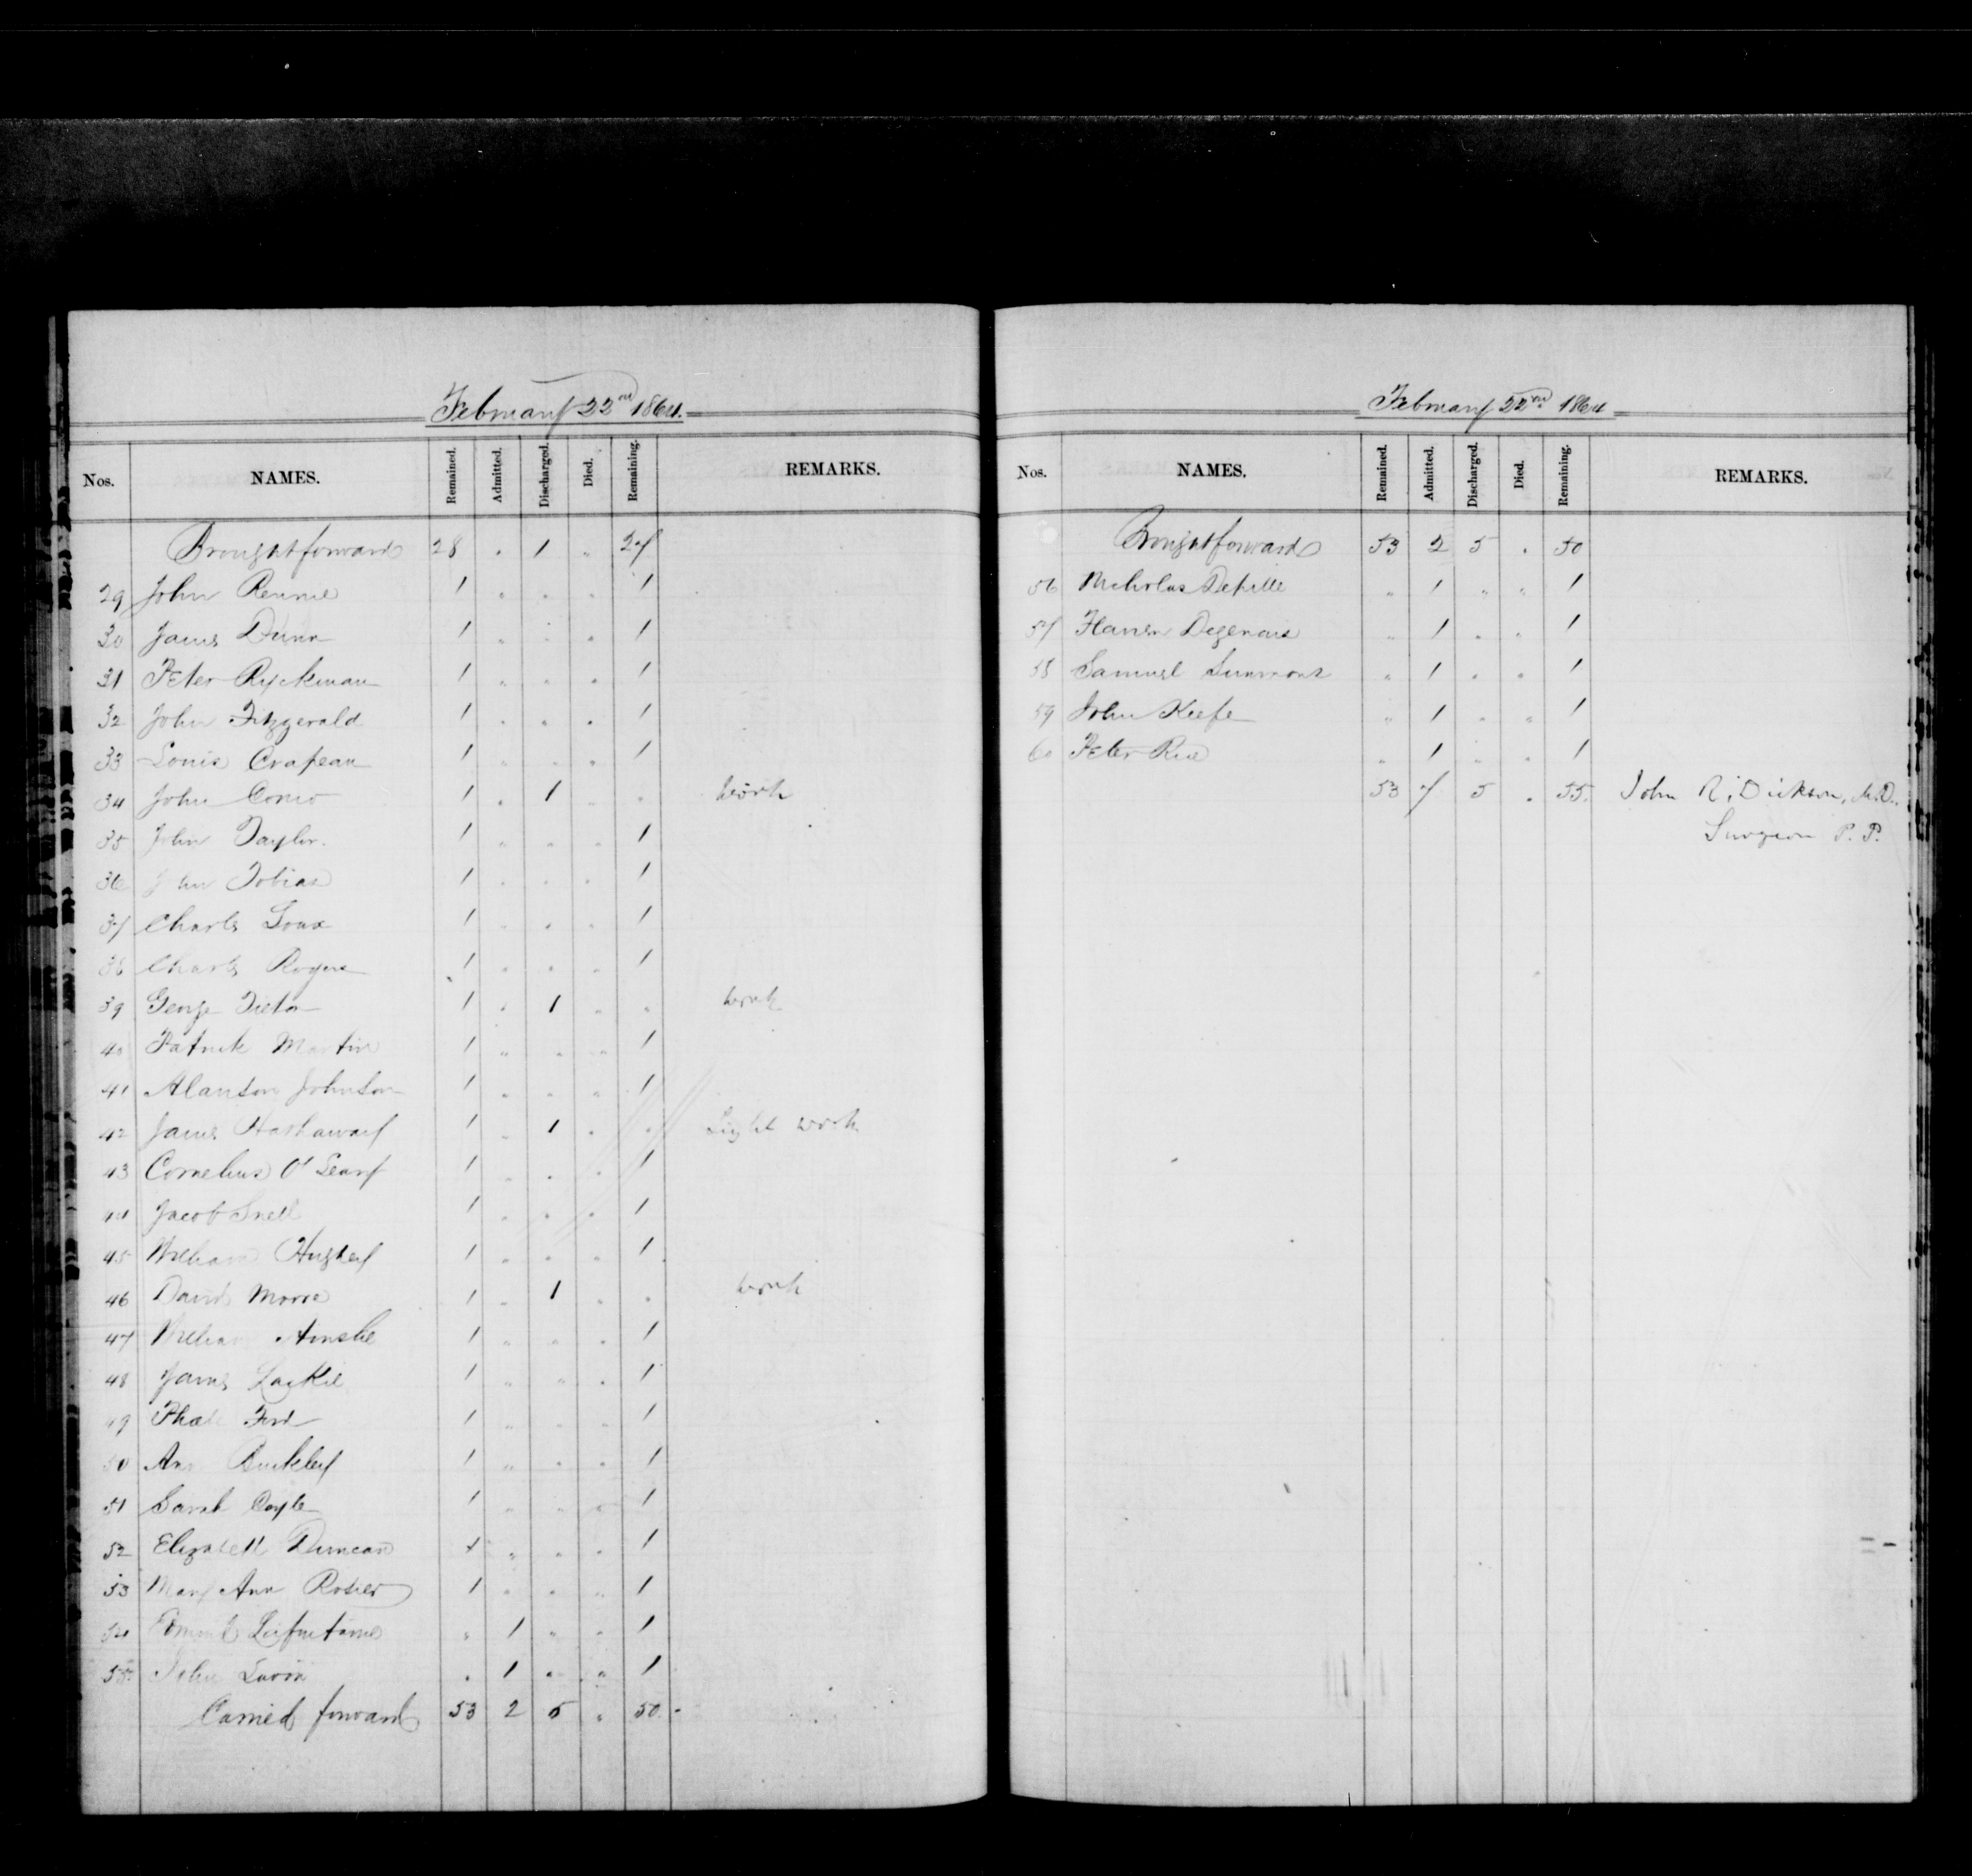 February 22nd 1864.
Nos. NAMES. Remained. Admitted. Discharged. Died. Remaining. REMARKS.
Brought forward 28 . 1 " 27
29 John Rennie 1 . . . 1
30 James Dunn 1 . . . 1
31 Peter Ryckman 1 " . . 1
32 John Fitzgerald 1 . . . 1
33 Louis Crapeau 1 " . . 1
34 John Como 1 . 1 . . work
35 John Taylor. 1 . . . 1
36 John Tobias 1 . . . 1
37 Charles 1 . . . 1
38 Charles Rogers 1 . . . 1
39 George 1 . 1 . . work
40 Patrick Martin 1 " . " 1
41 Alanson Johnson 1 . . . 1
42 James Hathaway 1 . 1 . . Light work
43 Cornelius O'Leary 1 . . . 1
44 Jacob Snell 1 . . . 1
45 William Hughey 1 . . . 1
46 David Moore 1 . 1 . . work
47 William Ainslie 1 " . . 1
48 James Lackie 1 " " . 1
49 Ford 1 " . " 1
50 Ann Buckley 1 " . . 1
51 Sarah Coyle 1 " . . 1
52 Elizabeth Duncan 1 " . . 1
53 Mary Ann Rosier 1 . . . 1
54 " 1 " . 1
55. John . 1 . " 1
Carried forward 53 2 5 " 50.
February 22nd 1864
Nos. NAMES. Remained. Admitted. Discharged. Died. Remaining. REMARKS.
Brought forward 53 2 5 . 50
56 Nicholas " 1 " " 1
57 Degenais " 1 . " 1
58 Samuel Simmons " 1 . . 1
59 John Keefe " 1 . " 1
60 Peter Rice " 1 " . 1
53 7 5 . 55. John R. Dickson, M.D.
Surgeon P. P.